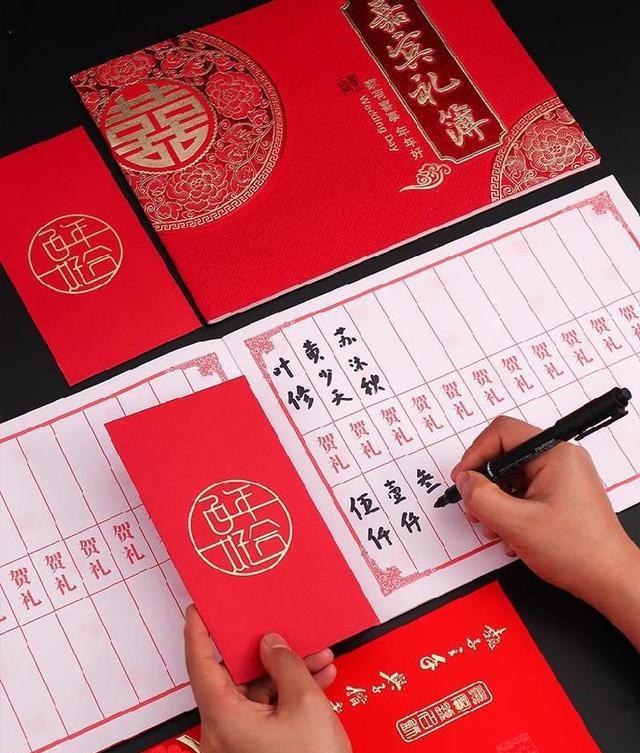 囍
嘉宾礼簿
Wedding Day
百年好合
叶修
黄少天
苏沐秋
贺礼 贺礼 贺礼 贺礼 贺礼 贺礼 贺礼 贺礼 贺礼 贺礼 贺礼
伍仟
壹仟
叁
百年好合
贺礼 贺礼 贺礼 贺礼